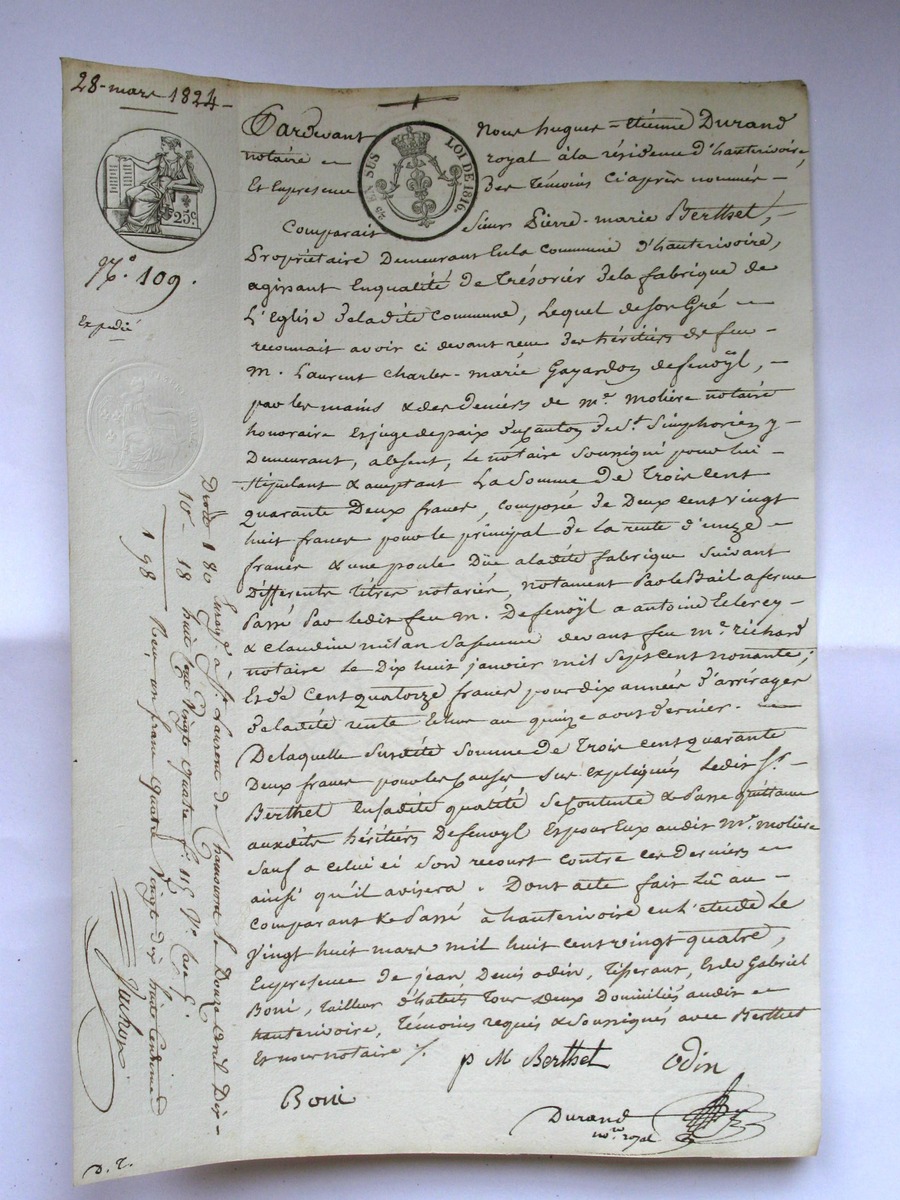 28 - mars 1824 -
Pardevant Nous hugues - étienne Durand
notaire royal à la résidence d'hauterivoire,
Et En presence Des témoins ci après nommés -
& EN SUS LOI DE 1816.
25c.
Comparait Sieur Pierre - marie Berthet, -
Propriétaire Demeurant En la Commune d'hauterivoire,
N.° 109.
agissant En qualité de Trésorier de la fabrique de
Expédié
L'Eglise de la dite Commune, Lequel de son Gré -
reconnait avoir ci devant reçu des héritiers de feu -
M. Laurent Charles - marie Gayardon de fenoÿl, -
par les mains & des deniers de Mr. Molière notaire
honoraire Ex juge de paix du canton de St. Simphorien y
Demeurant, absent, Le notaire Soussigné pour lui -
Stipulant & acceptant La Somme de Trois cent
quarante Deux francs, composée de Deux cent vingt
huit francs pour le principal de la rente d'onze -
francs & une poule Düe à la dite fabrique suivant
Différents titres notariés, notament Par le Bail a ferme
Passé Par ledit feu M. Defenoÿl a antoine Leleey -
& claudine milan Sa femme devant feu Me. richard
notaire Le Dix huit janvier mil Sept cent nonante ;
Et de Cent quatorze francs pour dix années d'arrérages
de la dite rente Echus au quinze aout dernier. -
De laquelle Susdite Somme de Trois cent quarante
Deux francs pour les Causes Sus Expliquées Ledit Sr. -
Berthet En sadite qualité Se contente & Passe quittance
auxdits héritiers Defenoyl Et pour Eux audit Mr. Molière
Sauf a celui ci Son recourt contre ces Derniers -
ainsi qu'il avisera. Dont acte fait Lû au -
comparant & Passé à hauterivoire en L'étude Le
Vingt huit mars mil huit cent vingt quatre,
En présence de jean Denis odin, Tisserant, Et de Gabriel
Boni, tailleur d'habits Tous deux Domiciliés audit -
hauterivoire, Témoins requis & Soussignés avec Berthet
Et nous notaire ./.
p M Berthet
Odin
Boni
Durand
nre. royal
Droits 1 80 Enregé. à St. Laurent de Chamousset le Douze avril Dix -
10 - 18 huit cent Vingt quatre f. 115 Vo. Case 5.
1 98 Reçu un franc quatre Vingt dix huit Centimes
D. T.